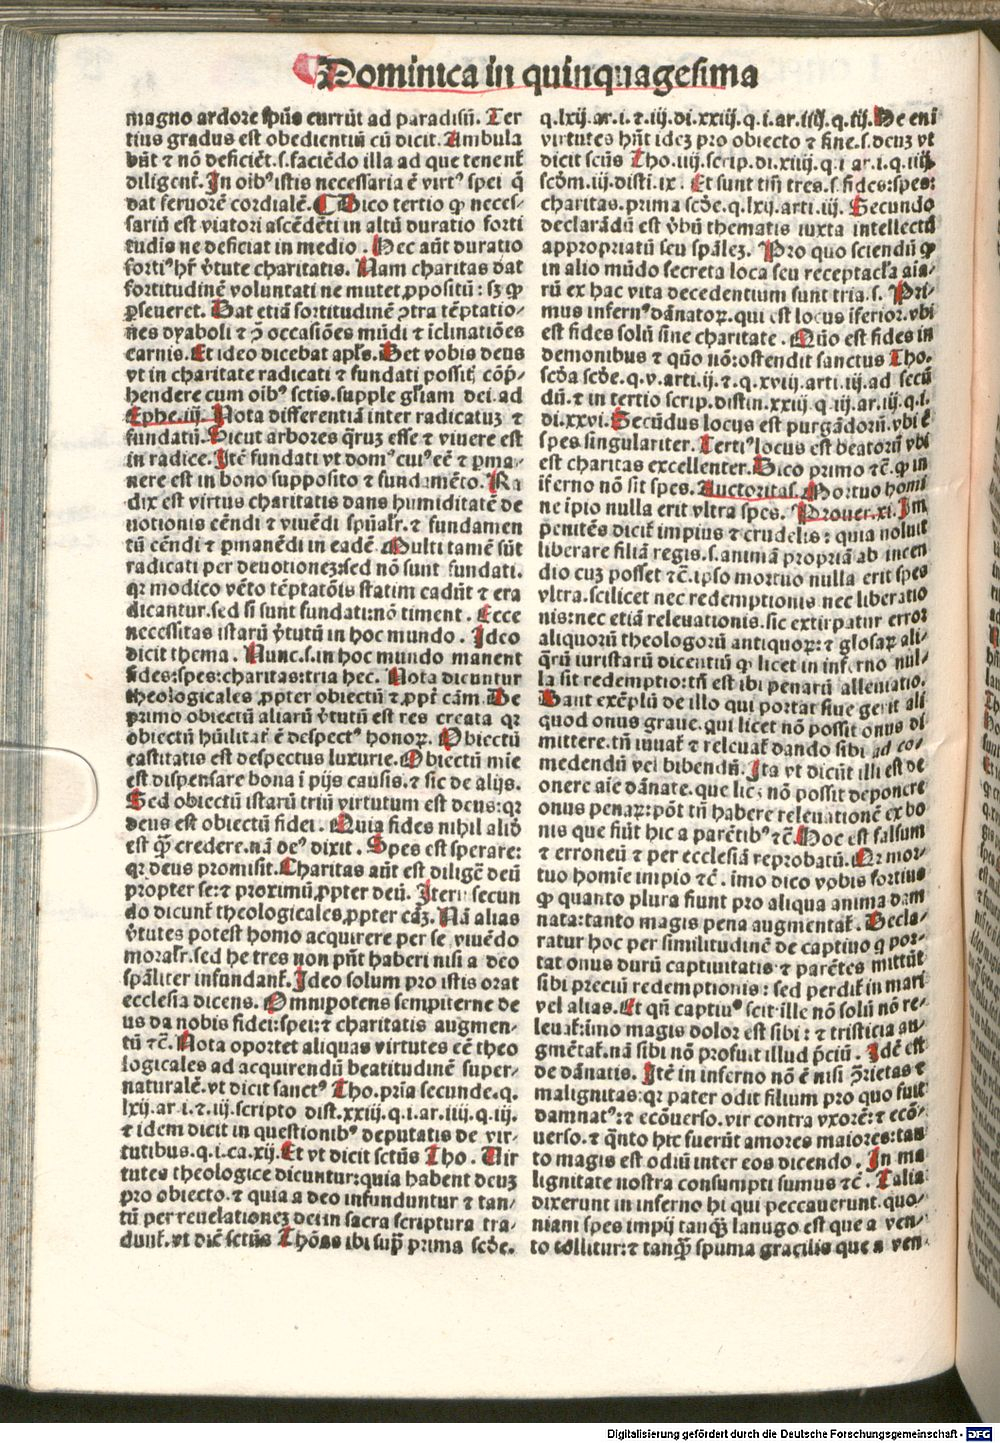 Dominica in quinquagesima
magno ardore spūs currūt ad paradisū. Ter
tius gradus est obedientiū cū dicit. Ambula
būt ⁊ nō deficiēt.s.faciēdo illa ad que tenent̄
diligent̄. In oibꝰ istis necessaria ē virtꝰ spei q̄
dat feruorē cordialē. ¶ Dico tertio ꝙ neces-
sariū est viatori ascēdēti in altū duratio forti
tudis ne deficiat in medio. Hec aūt duratio
fortiꝰ hr̄ v̄tute charitatis. Nam charitas dat
fortitudinē voluntati ne mutet ꝓpositū: sꝫ ꝙ
ꝑseueret. Dat etiā fortitudinē ꝯtra tēptatio-
nes dyaboli ⁊ ꝯ occasiões mūdi ⁊ īclinatiões
carnis. Et ideo dicebat apl̄s. Det vobis deus
vt in charitate radicati ⁊ fundati possitꝭ cōp̄-
hendere cum oibꝰ sctis.supple gl̄iam dei.ad
Ephe.iij. Nota differentiā inter radicatuꝫ ⁊
fundatū. Sicut arbores q̄ruꝫ esse ⁊ viuere est
in radice. Itē fundati vt domꝰ cuiꝰ eē ⁊ ꝑma-
nere est in bono supposito ⁊ fundamēto. Ra
dix est virtus charitatis dans humiditatē de
uotionis eēndi ⁊ viuēdi spūalr̄.⁊ fundamen
tū eēndi ⁊ ꝑmanēdi in eadē. Multi tamē sūt
radicati per deuotionez:sed nō sunt fundati.
qꝛ modico vēto tēptatōis statim cadūt ⁊ era
dicantur.sed si sunt fundati:nō timent. Ecce
necessitas istarū v̄tutū in hoc mundo. Ideo
dicit thema. Nunc.s.in hoc mundo manent
fides:spes:charitas:tria hec. Nota dicuntur
theologicales ꝓpter obiectū ⁊ ꝓpt̄ cām. De
primo obiectū aliarū v̄tutū est res creata qꝛ
obiectū hūilitat̄ ē despectꝰ honoꝝ. Obiectū
castitatis est despectus luxurie. Obiectū mie
est dispensare bona ī pijs causis.⁊ sic de alijs.
Sed obiectū istarū triū virtutum est deus:qꝛ
deus est obiectū fidei. Quia fides nihil aliđ
est q̄ꝫ credere.nā deꝰ dixit. Spes est sperare:
qꝛ deus promisit. Charitas aūt est diligē deū
propter se:⁊ proximū ꝓpter deū. Iterū secun
do dicunt̄ theologicales ꝓpter cāꝫ. Nā alias
v̄tutes potest homo acquirere per se viuēdo
moralr̄.sed he tres non pn̄t haberi nisi a deo
spāliter infundant̄. Ideo solum pro istis orat
ecclesia dicens. Omnipotens sempiterne de
us da nobis fidei:spei:⁊ charitatis augmen-
tū ⁊c̄. Nota oportet aliquas virtutes eē theo
logicales ad acquirendū beatitudinē super-
naturalē.vt dicit sanctꝰ Tho.pria secunde.q.
lxij.ar i.⁊.iij.scripto dist.xxiij.q.i.ar.iiij.q.iij.
⁊ idem dicit in questionibꝰ deputatis de vir-
tutibus.q.i.ca.xij. Et vt dicit sctūs Tho. Uir
tutes theologice dicuntur:quia habent deuꝫ
pro obiecto.⁊ quia a deo infunduntur ⁊ tan-
tū per reuelationeꝫ dei in sacra scriptura tra-
dunt̄.vt dic̄ sctūs Thōas ibi sup̄ prima scđe.
q.lxij.ar.i.⁊.iij.di.xxiij.q.i.ar.iiij.q.iij. He eni
virtutes hn̄t ideꝫ pro obiecto ⁊ fine.s.deuꝫ vt
dicit scūs Tho.iiij.scrip.di.xiiij.q.i ar.i.q.iiij.
scđm.iij.disti.ix. Et sunt tm̄ tres.s.fides:spes:
charitas.prima scđe.q.lxij.arti.iij. Secundo
declarādū est v̄bū thematis iuxta intellectū
appropriatū seu spāleꝫ. Pro quo sciendū ꝙ
in alio mūdo secreta loca seu receptacl̄a aīa-
rū ex hac vita decedentium sunt tria.s. Pri-
mus infernꝰ dānatoꝝ.qui est locus īferior.vbi
est fides solū sine charitate. Quō est fides in
demonibus ⁊ quō nō:ostendit sanctus Tho.
scđa scđe.q.v.arti.ij.⁊.q.xviij.arti.iij.ad secū
dū.⁊ in tertio scrip.distin.xxiij q iij.ar.iij.q.i.
di.xxvi. Secūdus locus est purgādorū.vbi ē
spes singulariter. Tertiꝰ locus est beatorū vbi
est charitas excellenter. Dico primo ⁊c̄.ꝙ in
īferno nō sit spes. Auctoritas. Mortuo homi
ne ipio nulla erit vltra spes. Prouer.xi. Im
penitēs dicit̄ impius ⁊ crudelis: quia noluit
liberare filiā regis.s.animā propriā ab incen
dio cuꝫ posset ⁊c̄.ipso mortuo nulla erit spes
vltra.scilicet nec redemptionis nec liberatio
nis:nec etiā releuationis.sic extirpatur error
aliquorū theologorū antiquoꝝ:⁊ glosaꝝ ali-
q̄rū iuristarū dicentiū ꝙ licet in inferno nul-
la sit redemptio:tn̄ est ibi penarū alleuiatio.
Dant exēplū de illo qui portat siue gerit ali
quod onus graue.qui licet nō possit onus di
mittere.tn̄ iuuat̄ ⁊ releuat̄ dando sibi ad co-
medendū vel bibendū. Ita vt dicūt illi est de
onere aīe dānate.que licꝫ nō possit deponere
onus penaꝝ:pōt tn̄ habere releuationē ex bo
nis que fiūt hic a parētibꝰ ⁊c̄. Hoc est falsum
⁊ erroneū ⁊ per ecclesiā reprobatū. Qꝛ mor-
tuo homīe impio ⁊c̄. imo dico vobis fortius
ꝙ quanto plura fiunt pro aliqua anima dam
nata:tanto magis pena augmentat̄. Decla-
ratur hoc per similitudinē de captiuo q por-
tat onus durū captiuitatis ⁊ parētes mittūt
sibi preciū redemptionis: sed perdit̄ in mari
vel alias. Et qn̄ captiuꝰ scit ille nō solū nō re-
leuat̄:imo magis dolor est sibi: ⁊ tristicia au-
gmētat̄.nā sibi nō profuit illud p̄ciū. Idē est
de dānatis. Itē in inferno nō ē nisi ꝯrietas ⁊
malignitas:qꝛ pater odit filium pro quo fuit
damnatꝰ:⁊ ecōuerso.vir contra vxorē:⁊ ecō-
uerso.⁊ q̄nto hic fuerūt amores maiores:tan
to magis est odiū inter eos dicendo. In ma
lignitate nostra consumpti sumus ⁊c̄. Talia
dixerunt in inferno hi qui peccauerunt.quo-
niam spes impij tanq̄ꝫ lanugo est que a ven-
to tollitur:⁊ tanq̄ꝫ spuma gracilis que a ven-
Digitalisierung gefördert durch die Deutsche Forschungsgemeinschaft - DFG